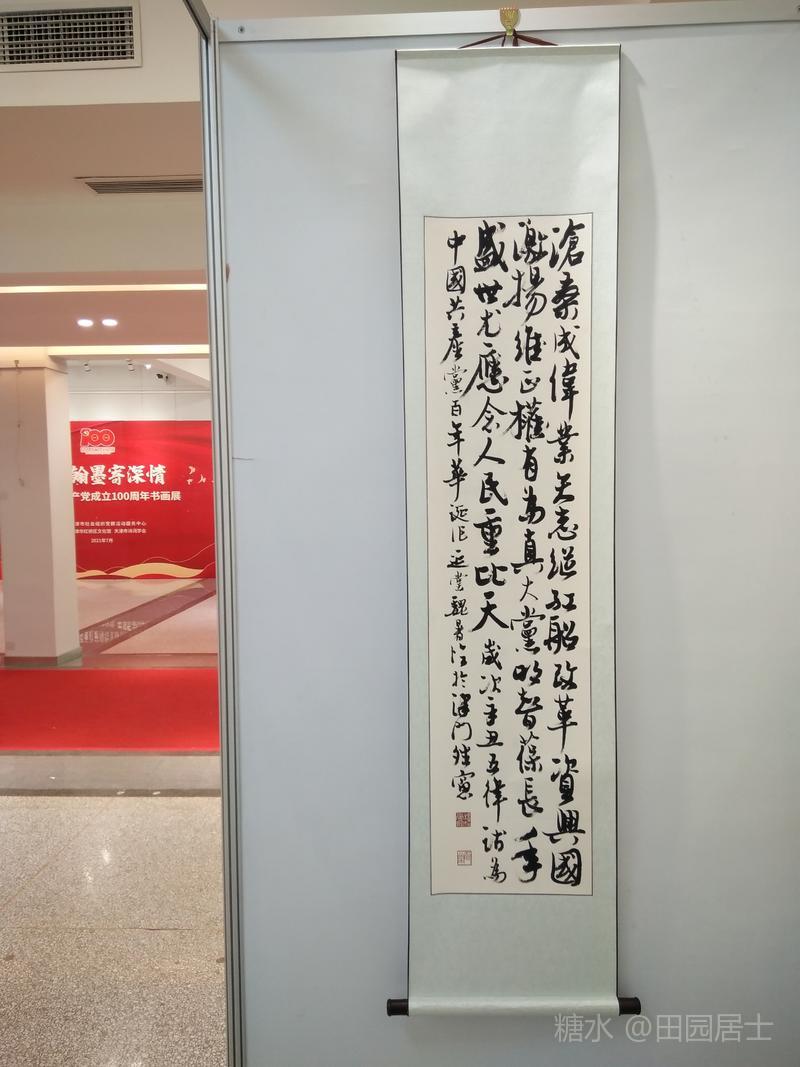 滄桑成偉業矢志繼紅船改革資興國
激揚維正權有為真大黨明智葆長年
盛世尤應念人民重比天歲次辛丑五律詩為
中國共產黨百年華誕作延堂魏暑臨於津門
100
翰墨寄深情
产党成立100周年书画展
津市社会组织党群活动服务中心
津市红桥区文化馆 天津市诗词学会
2021年7月
糖水 @田园居士